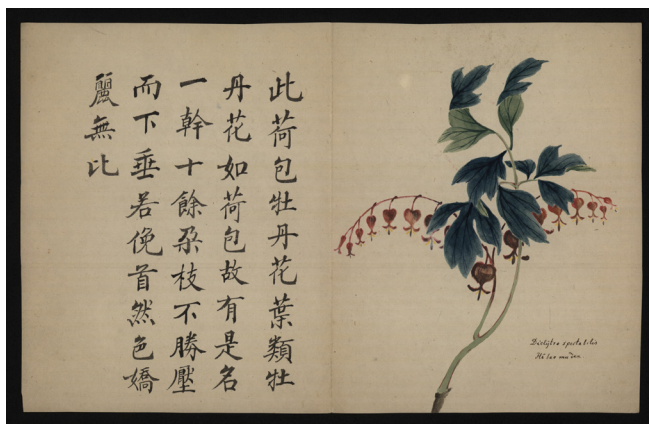 此荷包牡丹花葉類牡
丹花如荷包故有是名
一幹十餘朶枝不勝壓
而下垂若俛首然色嬌
麗無比
Dielytra spectabilis